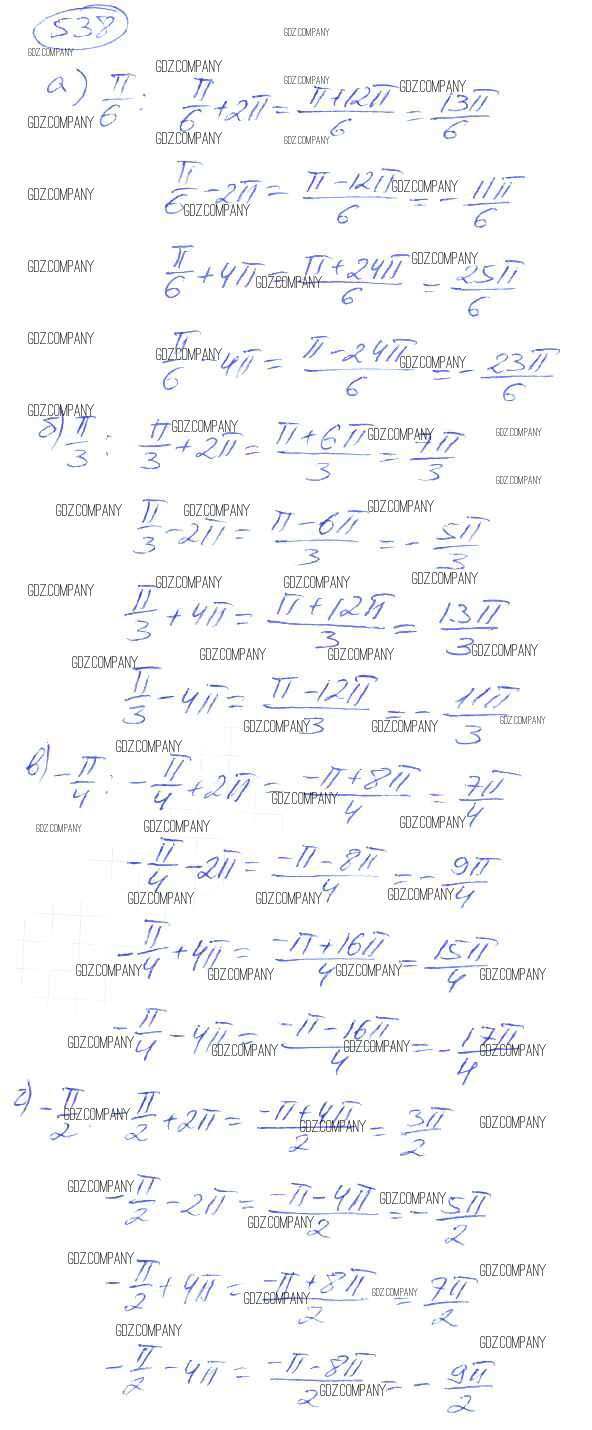 538
а) π/6 : π/6 + 2π = (π+12π)/6 = 13π/6
π/6 - 2π = (π-12π)/6 = - 11π/6
π/6 + 4π = (π+24π)/6 = 25π/6
π/6 - 4π = (π-24π)/6 = - 23π/6
б) π/3 : π/3 + 2π = (π+6π)/3 = 7π/3
π/3 - 2π = (π-6π)/3 = - 5π/3
π/3 + 4π = (π+12π)/3 = 13π/3
π/3 - 4π = (π-12π)/3 = - 11π/3
в) -π/4 : -π/4 + 2π = (-π+8π)/4 = 7π/4
-π/4 - 2π = (-π-8π)/4 = - 9π/4
-π/4 + 4π = (-π+16π)/4 = 15π/4
-π/4 - 4π = (-π-16π)/4 = - 17π/4
г) -π/2 : -π/2 + 2π = (-π+4π)/2 = 3π/2
-π/2 - 2π = (-π-4π)/2 = - 5π/2
-π/2 + 4π = (-π+8π)/2 = 7π/2
-π/2 - 4π = (-π-8π)/2 = - 9π/2
GDZ.COMPANY